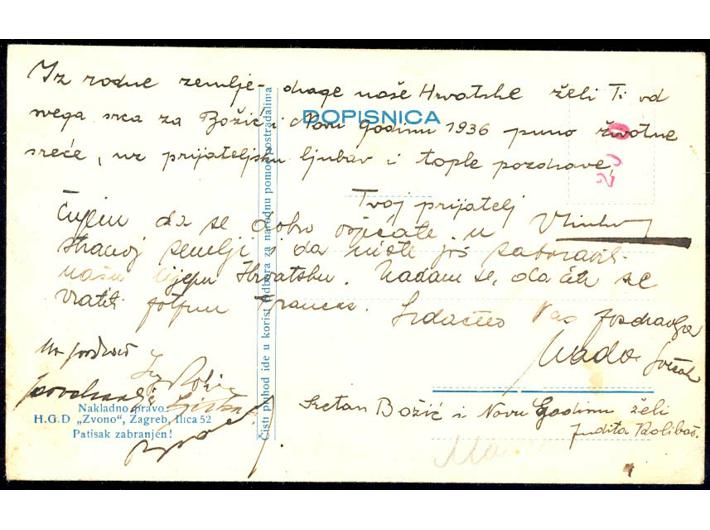 Iz rodne zemlje - drage naše Hrvatske želi Ti od
svega srca za Božić i Novu Godinu 1936 puno životne
sreće, uz prijateljsku ljubav i tople pozdrave,
DOPISNICA
Tvoj prijatelj
Čujem da se dobro osjećate u
stranoj zemlji i da niste još zaboravili
našu lijepu Hrvatsku. Nadam se, da ćete se
vratiti potpun Francez. Srdačno Vas pozdravlja
Vlado
Sretan Božić i Novu Godinu želi
Judita
Nakladno pravo:
H.G.D „Zvono", Zagreb, Ilica 52
Patisak zabranjen!
Čisti prihod ide u korist Odbora za narodnu pomoć postradalima